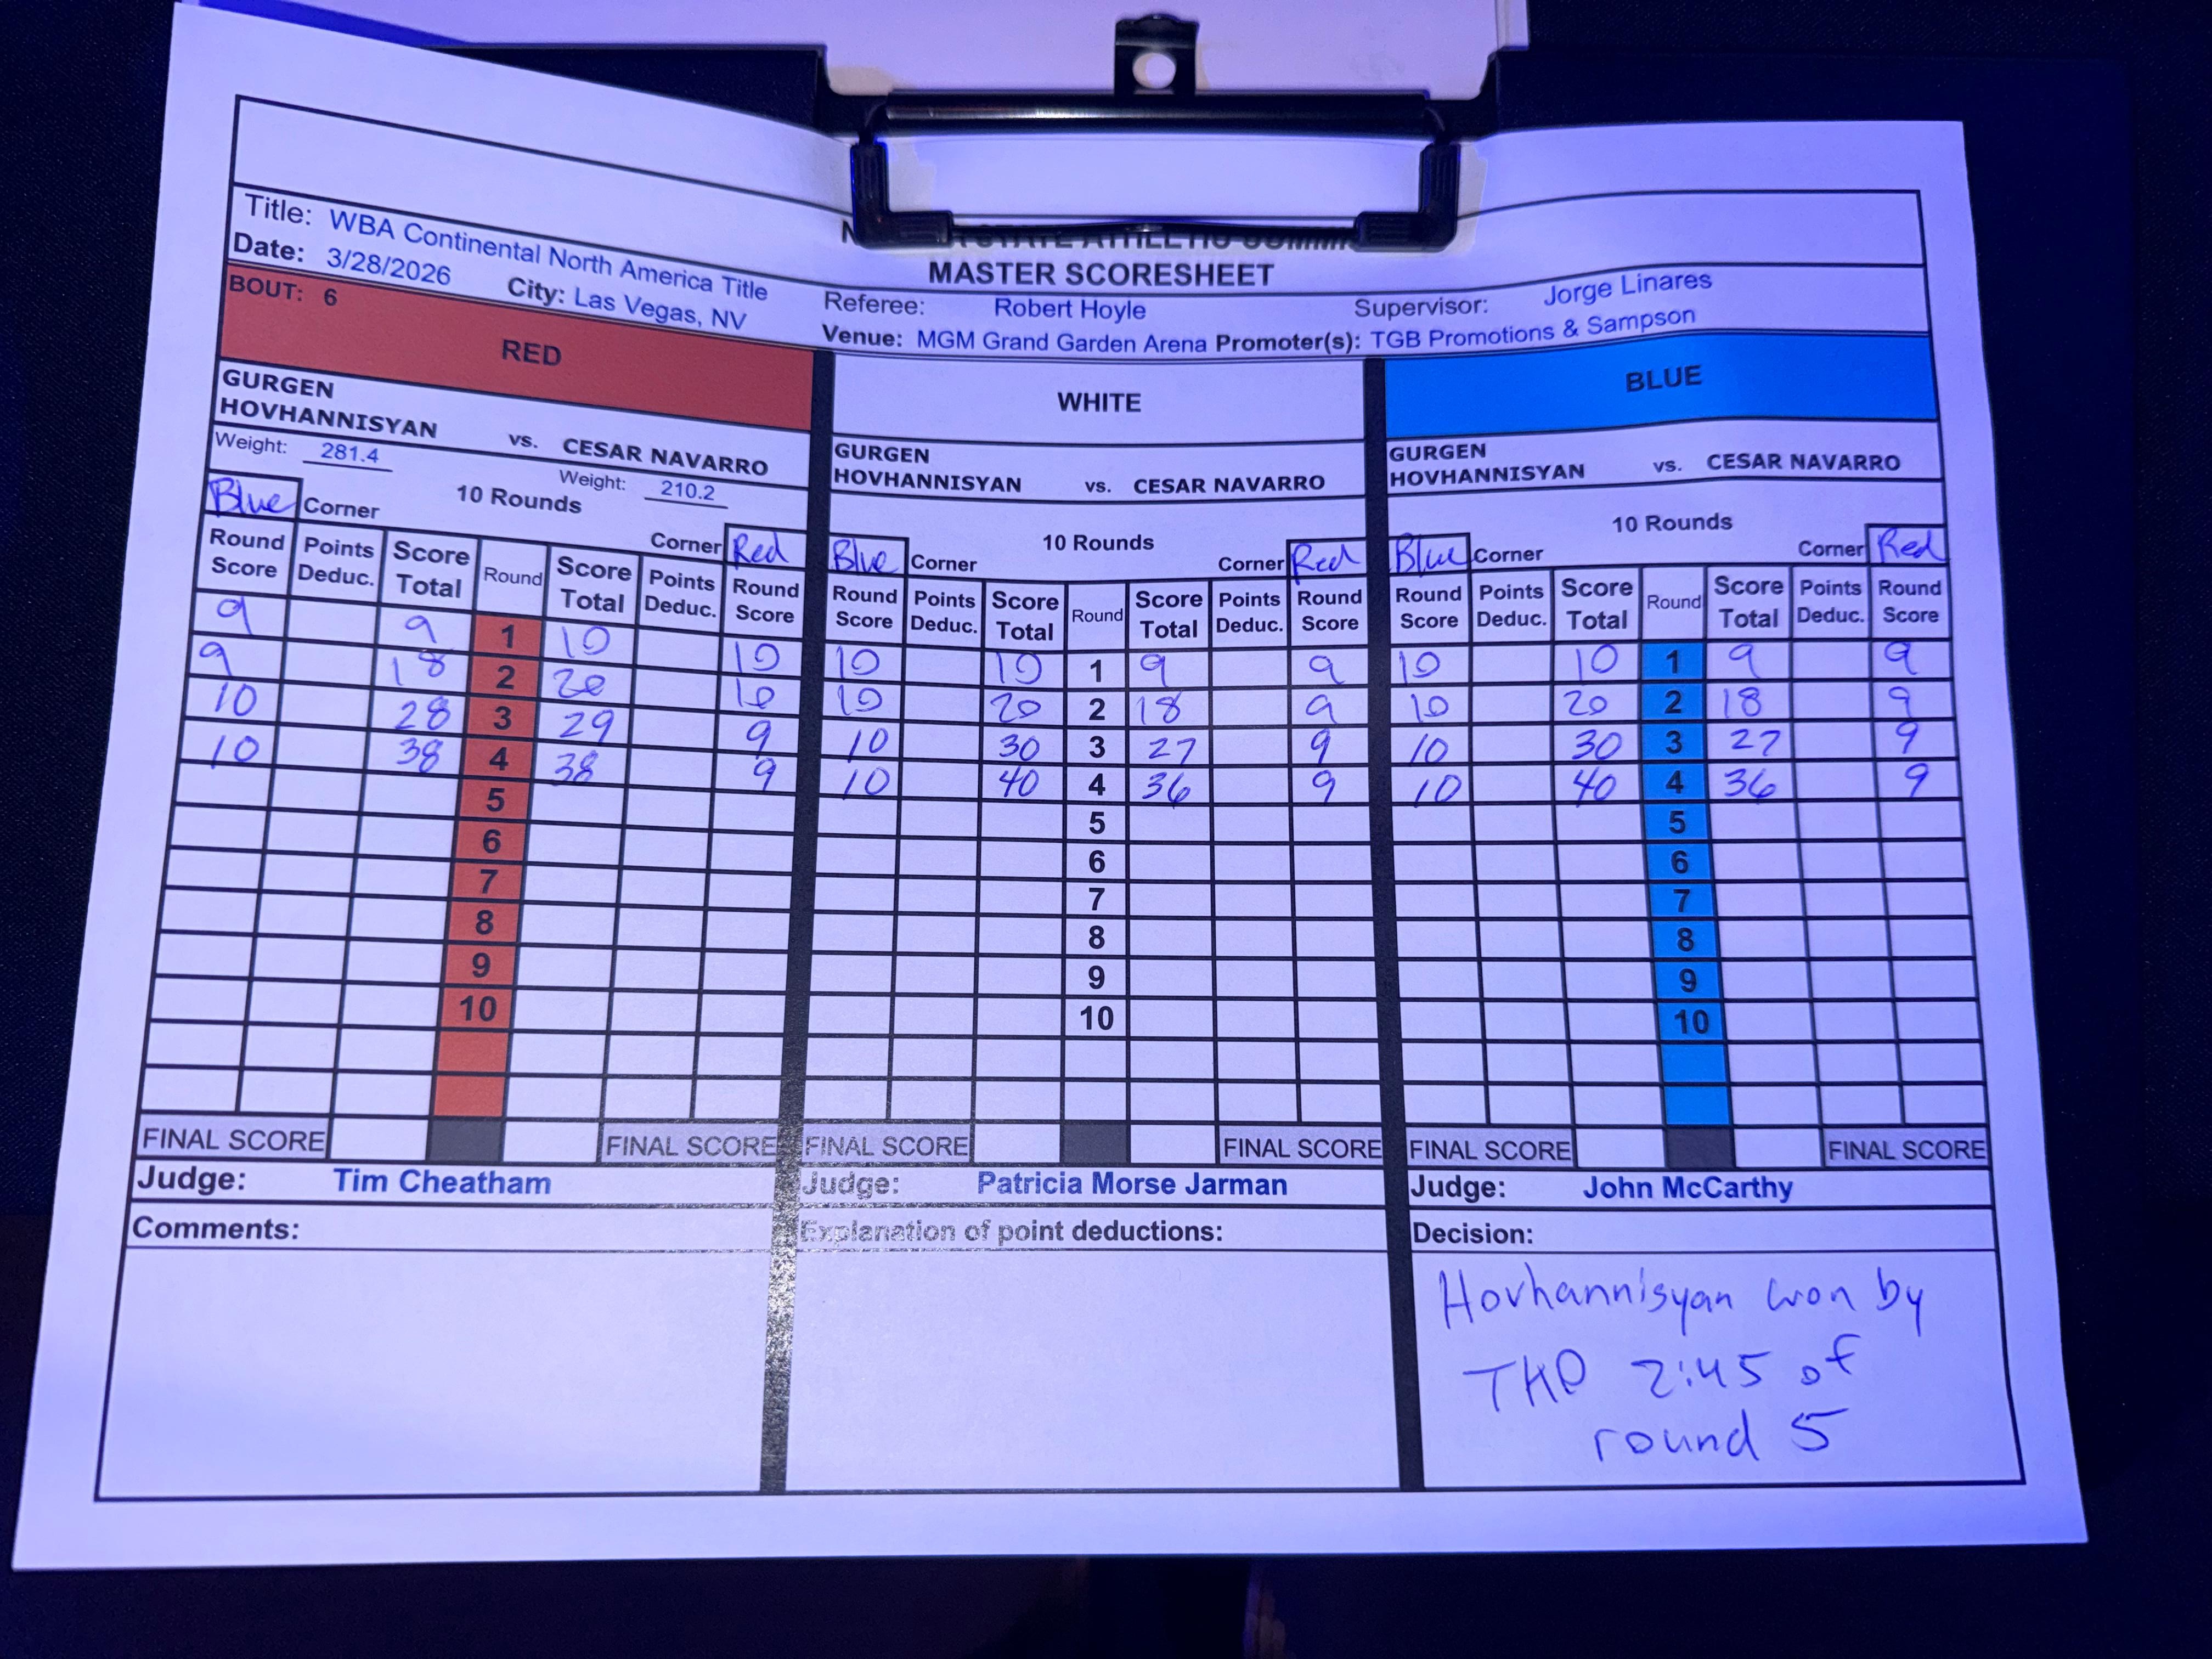 MASTER SCORESHEET
Title: WBA Continental North America Title
Referee: Robert Hoyle Supervisor: Jorge Linares
Date: 3/28/2026 City: Las Vegas, NV Venue: MGM Grand Garden Arena Promoter(s): TGB Promotions & Sampson
BOUT: 6
RED
WHITE
BLUE
GURGEN
HOVHANNISYAN vs. CESAR NAVARRO
Weight: 281.4 Weight: 210.2
10 Rounds
Blue Corner Corner Red
Round Score Points Deduc. Score Total Round Score Total Points Deduc. Round Score
9 9 1 10 10
9 18 2 20 10
10 28 3 29 9
10 38 4 38 9
5
6
7
8
9
10
FINAL SCORE FINAL SCORE
Judge: Tim Cheatham
Comments:
GURGEN
HOVHANNISYAN vs. CESAR NAVARRO
10 Rounds
Blue Corner Corner Red
Round Score Points Deduc. Score Total Round Score Total Points Deduc. Round Score
10 10 1 9 9
10 20 2 18 9
10 30 3 27 9
10 40 4 36 9
5
6
7
8
9
10
FINAL SCORE FINAL SCORE
Judge: Patricia Morse Jarman
Explanation of point deductions:
GURGEN
HOVHANNISYAN vs. CESAR NAVARRO
10 Rounds
Blue Corner Corner Red
Round Score Points Deduc. Score Total Round Score Total Points Deduc. Round Score
10 10 1 9 9
10 20 2 18 9
10 30 3 27 9
10 40 4 36 9
5
6
7
8
9
10
FINAL SCORE FINAL SCORE
Judge: John McCarthy
Decision:
Hovhannisyan won by
TKO 2:45 of
round 5